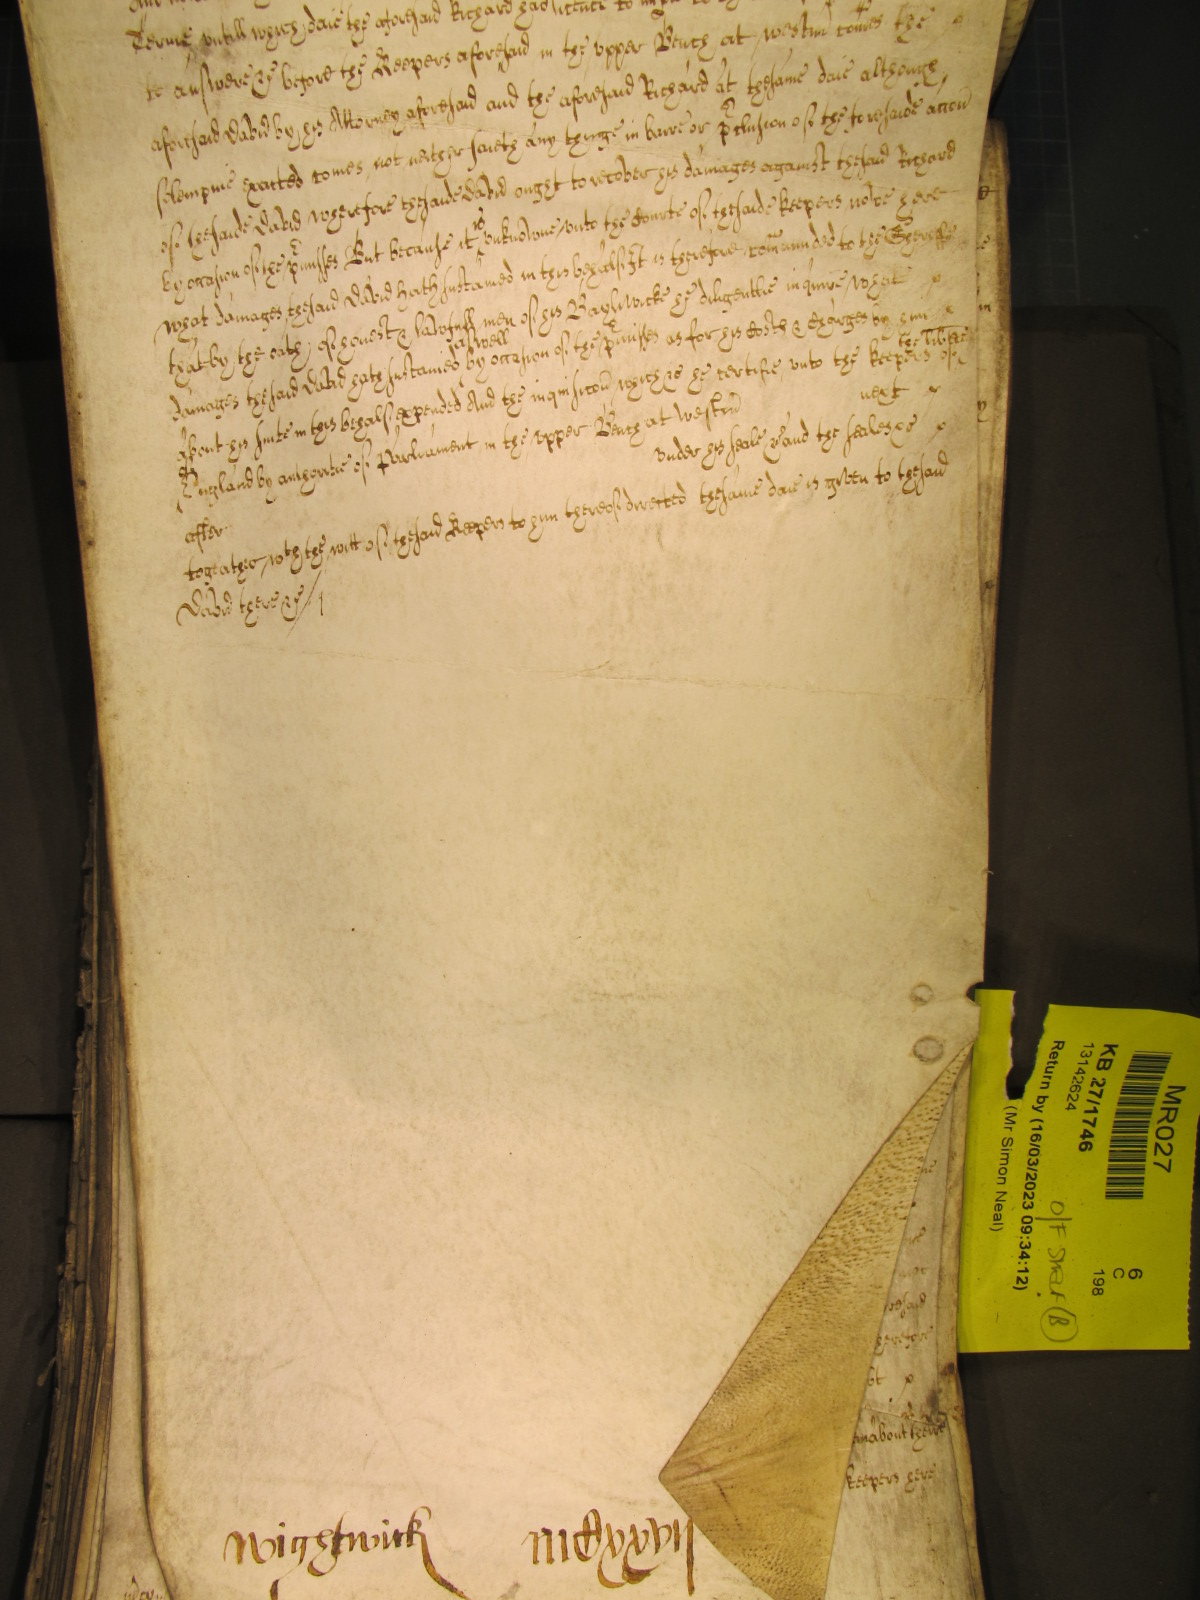 Terme, untill which daie the aforesaid Richard had licence to imple to
to answere &c before the Keepers aforesaid in the upper Bench at Westm comes the
aforesaid David by his Attorney aforesaid and the aforesaid Richard at the same daie although
solempnie exacted comes not neither saieth any thinge in barre or pclusion of the foresaide accon
of the saide David wherefore the saide David ought to recover his damages against the said Richard
by occasion of the pmisses But because it is unknowne unto the Courte of the saide keepers nowe here
what damages the said David hath sustained in this behalf It is therefore comaunded to the Sheriffe
that by the oath of honest & lawfull men of his Bayliwicke he diligentlie inquire what
damages the said David hath sustained aswell by occasion of the pmisses as for his Costs & Charges by him
about his suite in this behalf expended And the inquisicon which &c he certifie unto the keepers of the libertie
of England by authoritie of Parliament in the upper Bench at Westm next
after under his seale &c and the seales &c
togeather with the writt of the said Keepers to him thereof directed the same daie is given to the said
David there &c
Wightwick mCxxvii
in
y
aforesaid
therefore
in about there
keepers here
MR027
KB 27/1746
13142624
Return by (16/03/2023 09:34:12)
(Mr Simon Neal)
6
C
198
O/F Shelf (B)